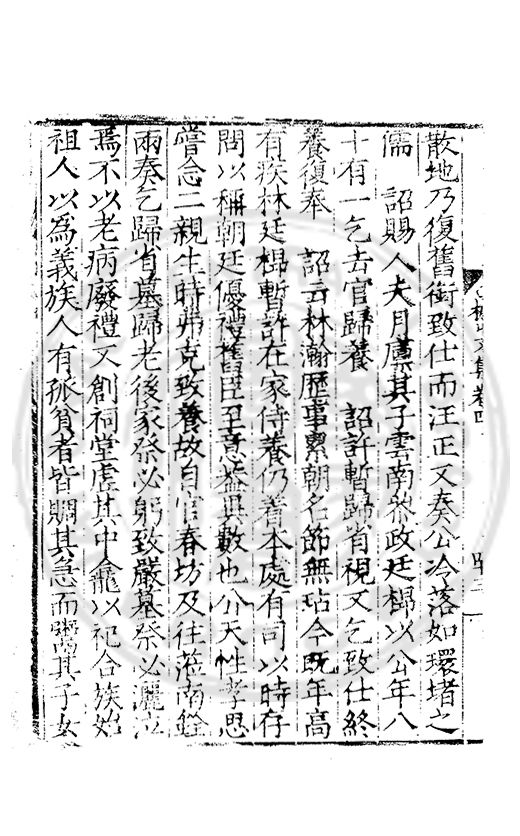 散地乃復舊銜致仕而汪正又奏公冷落如環堵之
儒　詔賜人夫月廩其子雲南叅政廷㭿以公年八
十有一乞去官歸養　詔許暫歸省視又乞致仕終
養復奉　詔云林瀚歷事累朝名節無玷今旣年高
有疾林廷㭿暫許在家侍養仍着本處有司以時存
問以稱朝廷優禮舊臣至意葢異數也公天性孝思
嘗念二親生時弗克致養故自官春坊及往蒞南銓
兩奏乞歸省墓歸老後家祭必躬致嚴墓祭必灑泣
焉不以老病廢禮又創祠堂虛其中龕以祀合族始
祖人以為義族人有孤貧者皆賙其急而鬻其子女
文集卷四